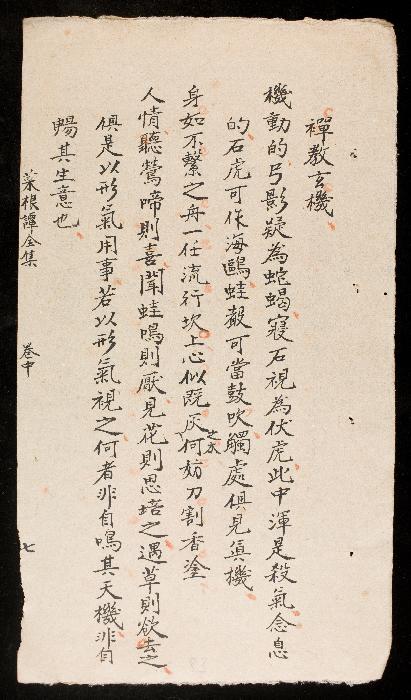 禪教玄機
機動的弓影疑為蛇蝎寢石視為伏虎此中渾是殺氣念息
的石虎可作海鷗蛙聲可當鼓吹觸處俱見真機
身如不繫之舟一任流行坎上心似既灰之木何妨刀割香塗
人情聽鶯啼則喜聞蛙鳴則厭見花則思培之遇草則欲去之
俱是以形氣用事若以形氣視之何者非自鳴其天機非自
暢其生意也
菜根譚全集 卷中 七